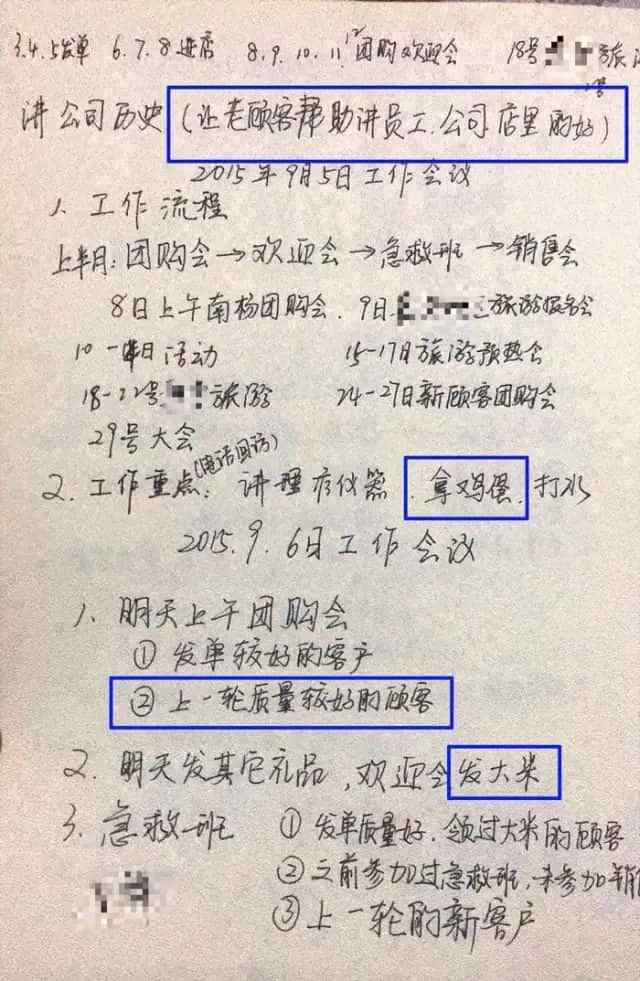 3.4.5发单 6.7.8进店 8.9.10.11.12团购欢迎会 18号 旅游
讲公司历史(让老顾客帮助讲员工.公司店里的好)
2015年9月5日工作会议
1. 工作流程
上半月:团购会→欢迎会→急救班→销售会
8日上午南杨团购会. 9日 旅游报名会
10-14日活动 15-17日旅游预热会
18-22号 旅游 24-27日新顾客团购会
29号大会
2. 工作重点(电话回访): 讲理疗仪器.拿鸡蛋.打水
2015.9.6日工作会议
1. 明天上午团购会
① 发单较好的客户
② 上一轮质量较好的顾客
2. 明天发其它礼品,欢迎会发大米
3. 急救班 ① 发单质量好.领过大米的顾客
② 之前参加过急救班,未参加销
③ 上一轮的新客户